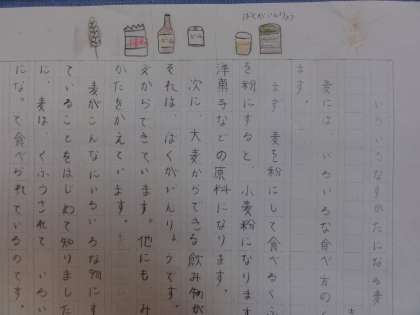 ばくがいんりょう
いろいろなすがたになる麦
麦には いろいろな食べ方のく
ます。
まず 麦を粉にして食べるくふ
を粉にすると、小麦粉になります
洋菓子などの原料になります。
次に、大麦からできる飲み物が
それは、ばくがいんりょうです。
えからできています。他にも み
かたをかえています。
麦がこんなにいろいろな物にす
ていることをはじめて知りました
に、麦は くふうされて いろい
になって食べられているのです。